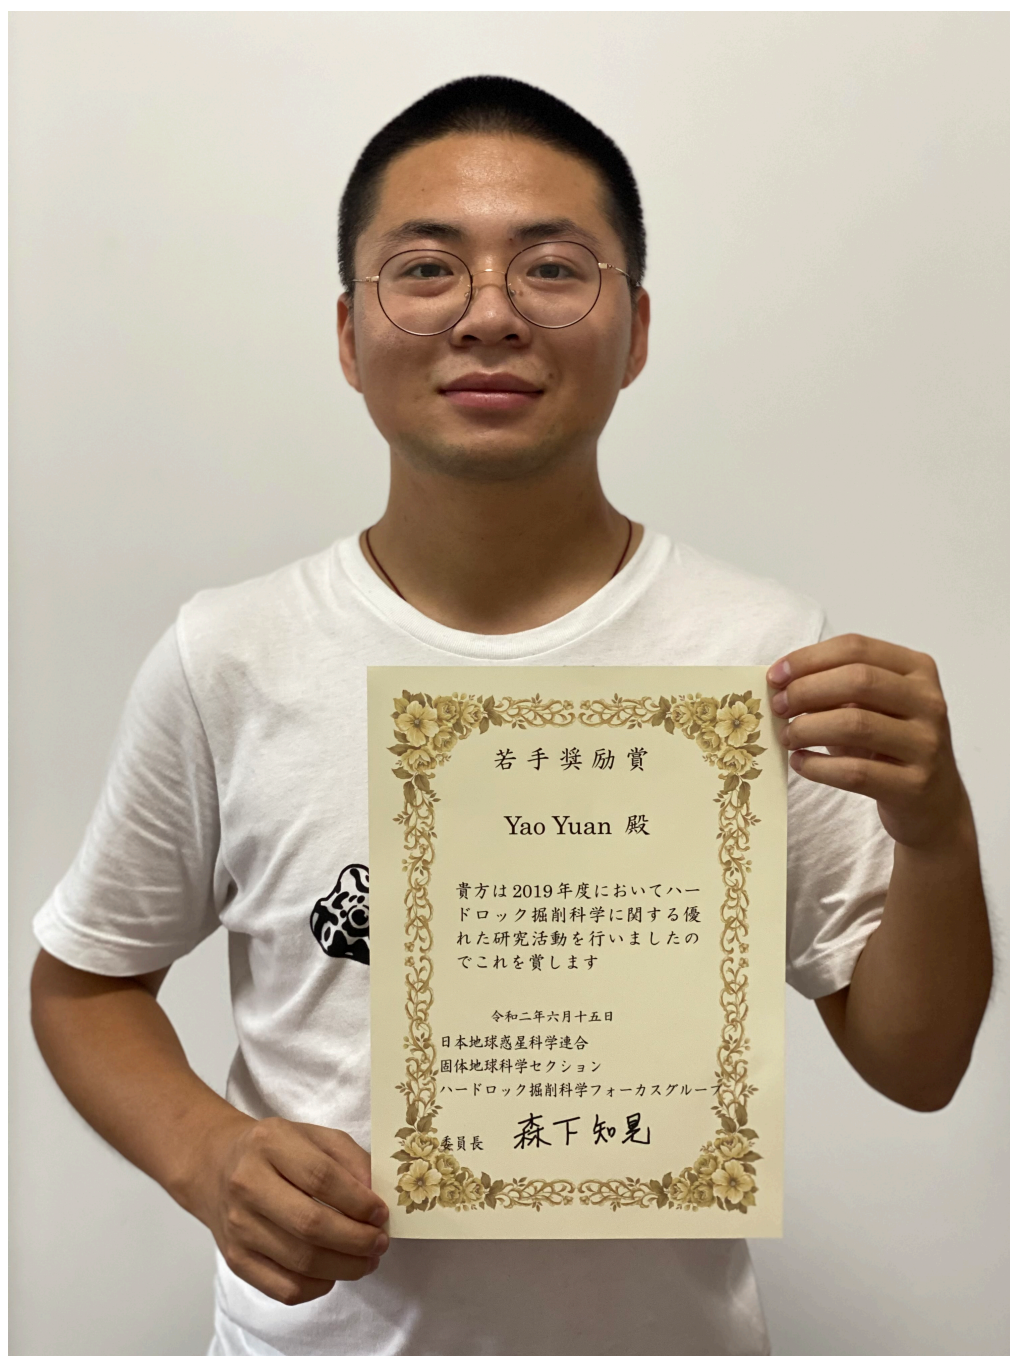 若手奨励賞
Yao Yuan 殿
貴方は2019年度においてハー
ドロック掘削科学に関する優
れた研究活動を行いましたの
でこれを賞します
令和二年六月十五日
日本地球惑星科学連合
固体地球科学セクション
ハードロック掘削科学フォーカスグループ
委員長 森下知晃